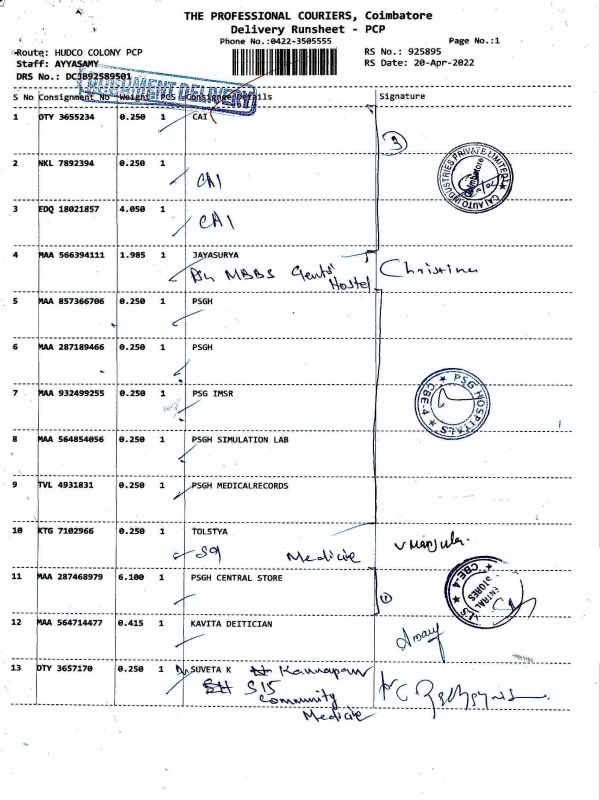 THE PROFESSIONAL COURIERS, Coimbatore
Delivery Runsheet - PCP
Phone No.:0422-3505555
Page No.:1
Route: HUDCO COLONY PCP
RS No.: 925895
Staff: AYYASAMY
RS Date: 20-Apr-2022
DRS No.: DC3B92589501
DOCUMENT DELIVERY
S No Consignment No Weight PCS Consignee Details Signature
1 DTY 3655234 0.250 1 CAI
3
CAI AUTO INDUSTRIES PRIVATE LIMITED
Coimbatore
2 NKL 7892394 0.250 1
CAI
3 EDQ 18021857 4.050 1
CAI
4 MAA 566394111 1.985 1 JAYASURYA
MBBS Gents' Hostel
Christina
5 MAA 857366706 0.250 1 PSGH
6 MAA 287189466 0.250 1 PSGH
7 MAA 932499255 0.250 1 PSG IMSR
PSG HOSPITALS
CBE-4
8 MAA 564854056 0.250 1 PSGH SIMULATION LAB
9 TVL 4931831 0.250 1 PSGH MEDICALRECORDS
10 KTG 7102966 0.250 1 TOLSTYA
S9 Medicine
V Manjula.
11 MAA 287468979 6.100 1 PSGH CENTRAL STORE
1
CENTRAL STORES
CBE-4
12 MAA 564714477 0.415 1 KAVITA DEITICIAN
13 DTY 3657170 0.250 1 SUVETA K
S15
Community
Medicine